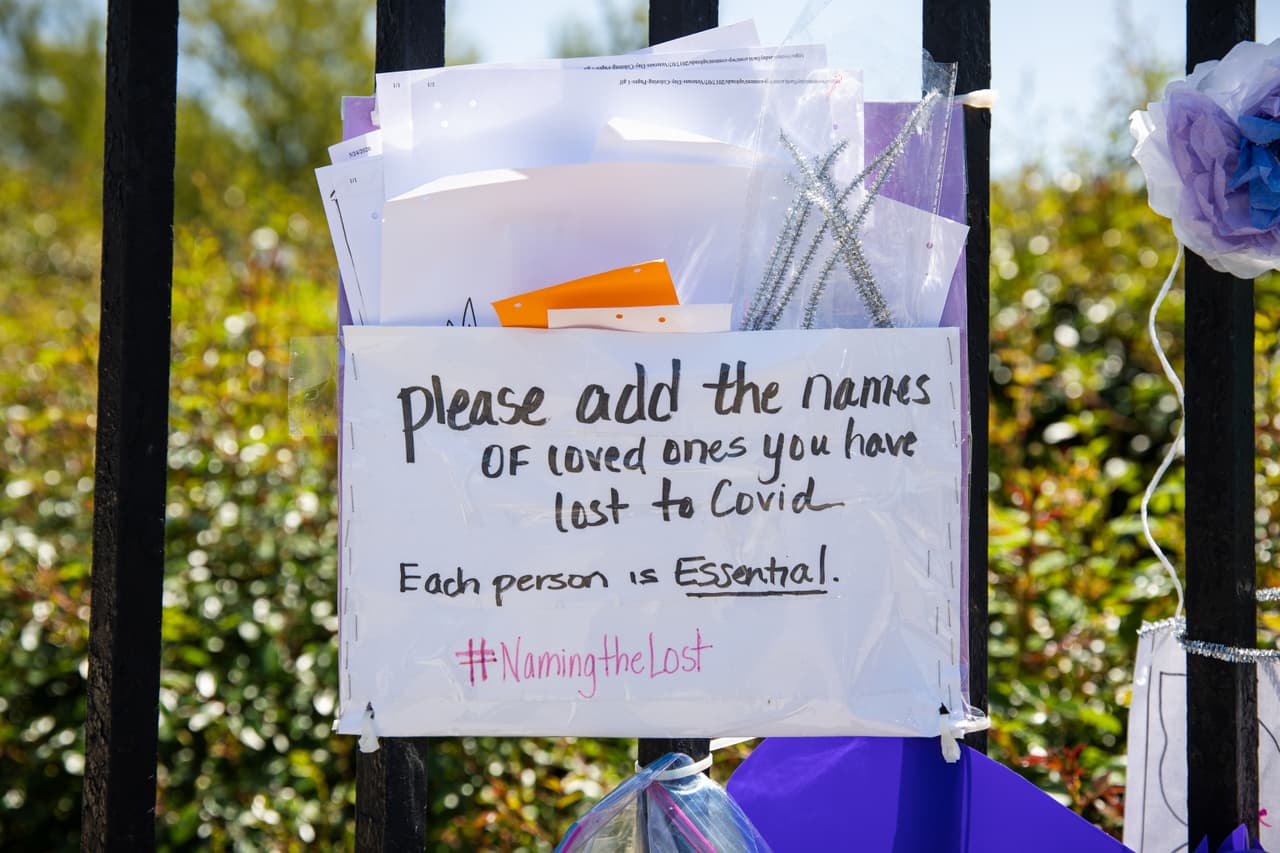 1/1
1/1
5/24/2020
1/1
please add the names
OF loved ones you have
lost to Covid
Each person is Essential.
#NamingtheLost